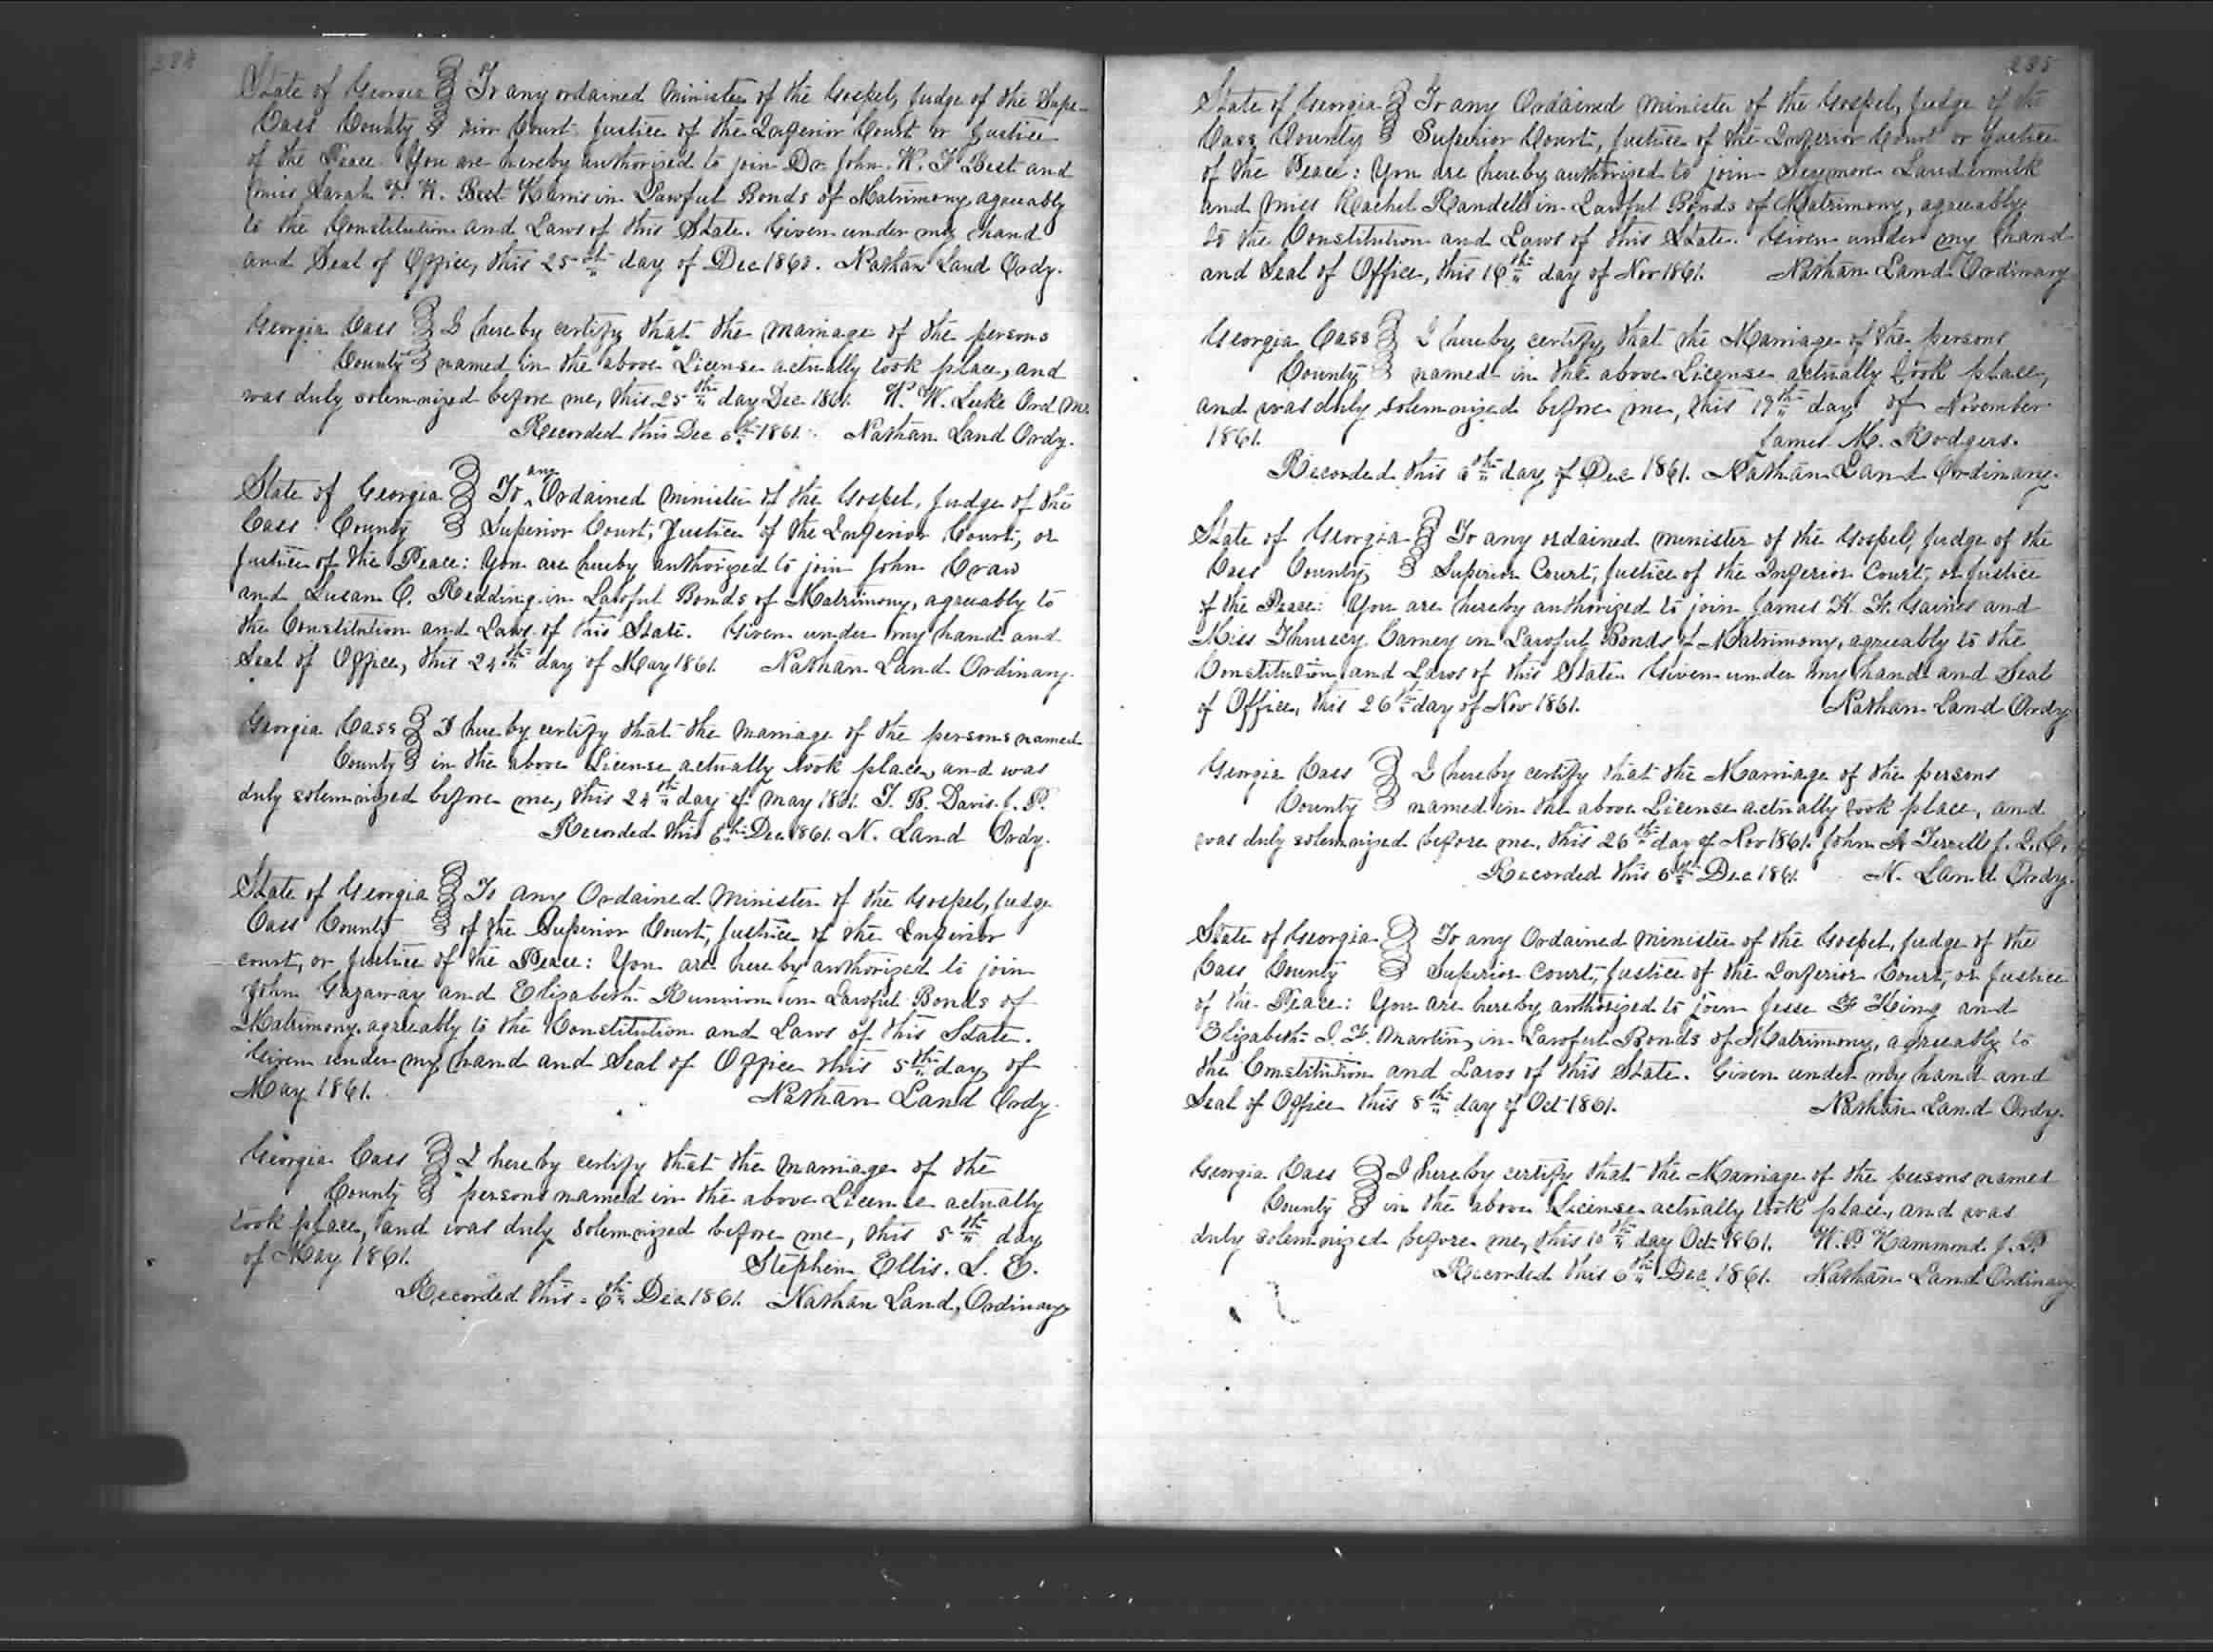 284
State of Georgia To any ordained minister of the Gospel, Judge of the Supe-
Cass County rior Court Justice of the Inferior Court or Justice
of the Peace. You are hereby authorized to join Dr. John. W. F. Best and
miss Sarah F. H. Best Harris in Lawful Bonds of Matrimony, agreeably
to the Constitution and Laws of this State. Given under my hand
and Seal of Office, this 25th day of Dec 1860. Nathan Land Ordy.
Georgia Cass I hereby certify that the marriage of the persons
County named in the above License actually took place, and
was duly solemnized before me, this 25th day Dec 1861. W. W. Luke Ord M.
Recorded this Dec 6th 1861. Nathan Land Ordy.
State of Georgia To any Ordained minister of the Gospel, Judge of the
Cass County Superior Court, Justice of the Inferior Court, or
Justice of the Peace: You are hereby authorized to join John Craw
and Susan C. Redding in Lawful Bonds of Matrimony, agreeably to
the Constitution and Laws of this State. Given under my hand and
Seal of Office, this 24th day of May 1861. Nathan Land Ordinary.
Georgia Cass I hereby certify that the marriage of the persons named
County in the above License actually took place, and was
duly solemnized before me, this 24th day of May 1861. T. B. Davis. J. P.
Recorded this 6th Dec 1861. N. Land Ordy.
State of Georgia To any Ordained Minister of the Gospel, Judge
Cass County of the Superior Court, Justice of the Inferior
court, or Justice of the Peace: You are hereby authorized to join
John Gazaway and Elizabeth Runnion in Lawful Bonds of
Matrimony, agreeably to the Constitution and Laws of this State.
Given under my hand and Seal of Office this 5th day of
May 1861. Nathan Land Ordy.
Georgia Cass I hereby certify that the marriage of the
County persons named in the above License actually
took place, and was duly solemnized before me, this 5th day
of May 1861. Stephen Ellis. L. E.
Recorded this 6th Dec 1861. Nathan Land, Ordinary
285
State of Georgia To any Ordained minister of the Gospel, Judge of the
Cass County Superior Court, Justice of the Inferior Court or Justice
of the Peace: You are hereby authorized to join Segemore Laudermilk
and miss Rachel Randell in Lawful Bonds of Matrimony, agreeably
to the Constitution and Laws of this State. Given under my hand
and Seal of Office, this 16th day of Nov 1861. Nathan Land Ordinary
Georgia Cass I hereby certify, that the Marriage of the persons
County named in the above License actually took place,
and was duly solemnized before me, this 17th day of November
1861. James M. Rodgers.
Recorded this 6th day of Dec 1861. Nathan Land Ordinary.
State of Georgia To any ordained minister of the Gospel, Judge of the
Cass County Superior Court, Justice of the Inferior Court, or Justice
of the Peace: You are hereby authorized to join James H. Gaines and
Miss Camey in Lawful Bonds of Matrimony, agreeably to the
Constitution and Laws of this State. Given under my hand and Seal
of Office, this 26th day of Nov 1861. Nathan Land Ordy
Georgia Cass I hereby certify that the Marriage of the persons
County named in the above License actually took place, and
was duly solemnized before me, this 26th day of Nov 1861. John A Terrell J. I. C.
Recorded this 6th Dec 1861. N. Land Ordy.
State of Georgia To any Ordained minister of the Gospel, Judge of the
Cass County Superior Court, Justice of the Inferior Court, or Justice
of the Peace: You are hereby authorized to join Jesse F King and
Elizabeth I. F. Martin, in Lawful Bonds of Matrimony, agreeably to
the Constitution and Laws of this State. Given under my hand and
Seal of Office this 8th day of Oct 1861. Nathan Land Ordy.
Georgia Cass I hereby certify that the Marriage of the persons named
County in the above License actually took place, and was
duly solemnized before me, this 10th day Oct 1861. W. P. Hammond J. P.
Recorded this 6th Dec 1861. Nathan Land Ordinary.